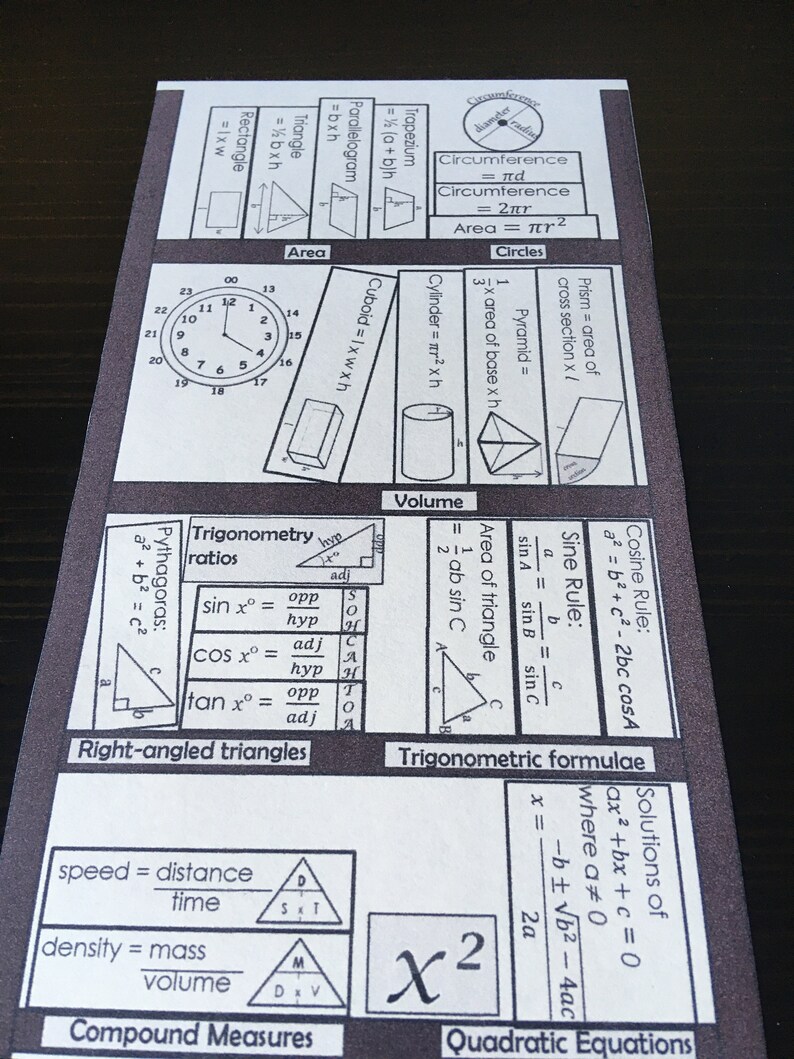 Rectangle
= l x w
Triangle
= ½ b x h
h
b
Parallelogram
= b x h
h
b
Trapezium
= ½ (a + b)h
a
h
b
Circumference
diameter
radius
Circumference
= πd
Circumference
= 2πr
Area = πr²
Area
Circles
00
13
14
15
16
17
18
19
20
21
22
23
12
1
2
3
4
5
6
7
8
9
10
11
Cuboid = l x w x h
Cylinder = πr² x h
r
h
Pyramid =
1/3 x area of base x h
h
Prism = area of
cross section x l
cross
section
Volume
Pythagoras:
a² + b² = c²
a
b
c
Trigonometry
ratios
hyp
opp
x°
adj
sin x° = opp/hyp
SOH
cos x° = adj/hyp
CAH
tan x° = opp/adj
TOA
Area of triangle
= 1/2 ab sin C
A
b
C
c
a
B
Sine Rule:
a/sin A = b/sin B = c/sin C
Cosine Rule:
a² = b² + c² - 2bc cosA
Right-angled triangles
Trigonometric formulae
speed = distance
time
D
S x T
density = mass
volume
M
D x V
x²
Solutions of
ax² + bx + c = 0
where a ≠ 0
x = -b ± √b² − 4ac
2a
Compound Measures
Quadratic Equations